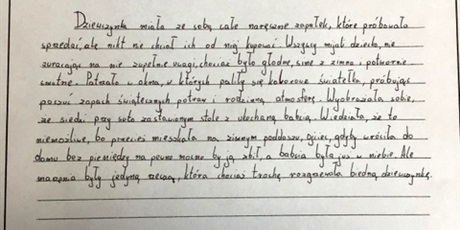 Dziewczynka miała ze sobą całe naręcze zapałek, które próbowała
sprzedać, ale nikt nie chciał ich od niej kupować. Wszyscy mijali dziecko, nie
zwracając na nie zupełnie uwagi, chociaż było głodne, sine z zimna i potwornie
smutne. Patrzało w okna, w których paliły się kolorowe światełka, próbując
poczuć zapach świątecznych potraw i rodzinną atmosferę. Wyobrażała sobie,
że siedzi przy suto zastawionym stole z ukochaną babcią. Wiedziała, że to
niemożliwe, bo przecież mieszkała na zimnym poddaszu, ojciec, gdyby wróciła do
domu bez pieniędzy na pewno mocno by ją zbił, a babcia była już w niebie. Ale
marzenia były jedyną rzeczą, która chociaż trochę rozgrzewała biedną dziewczynkę.